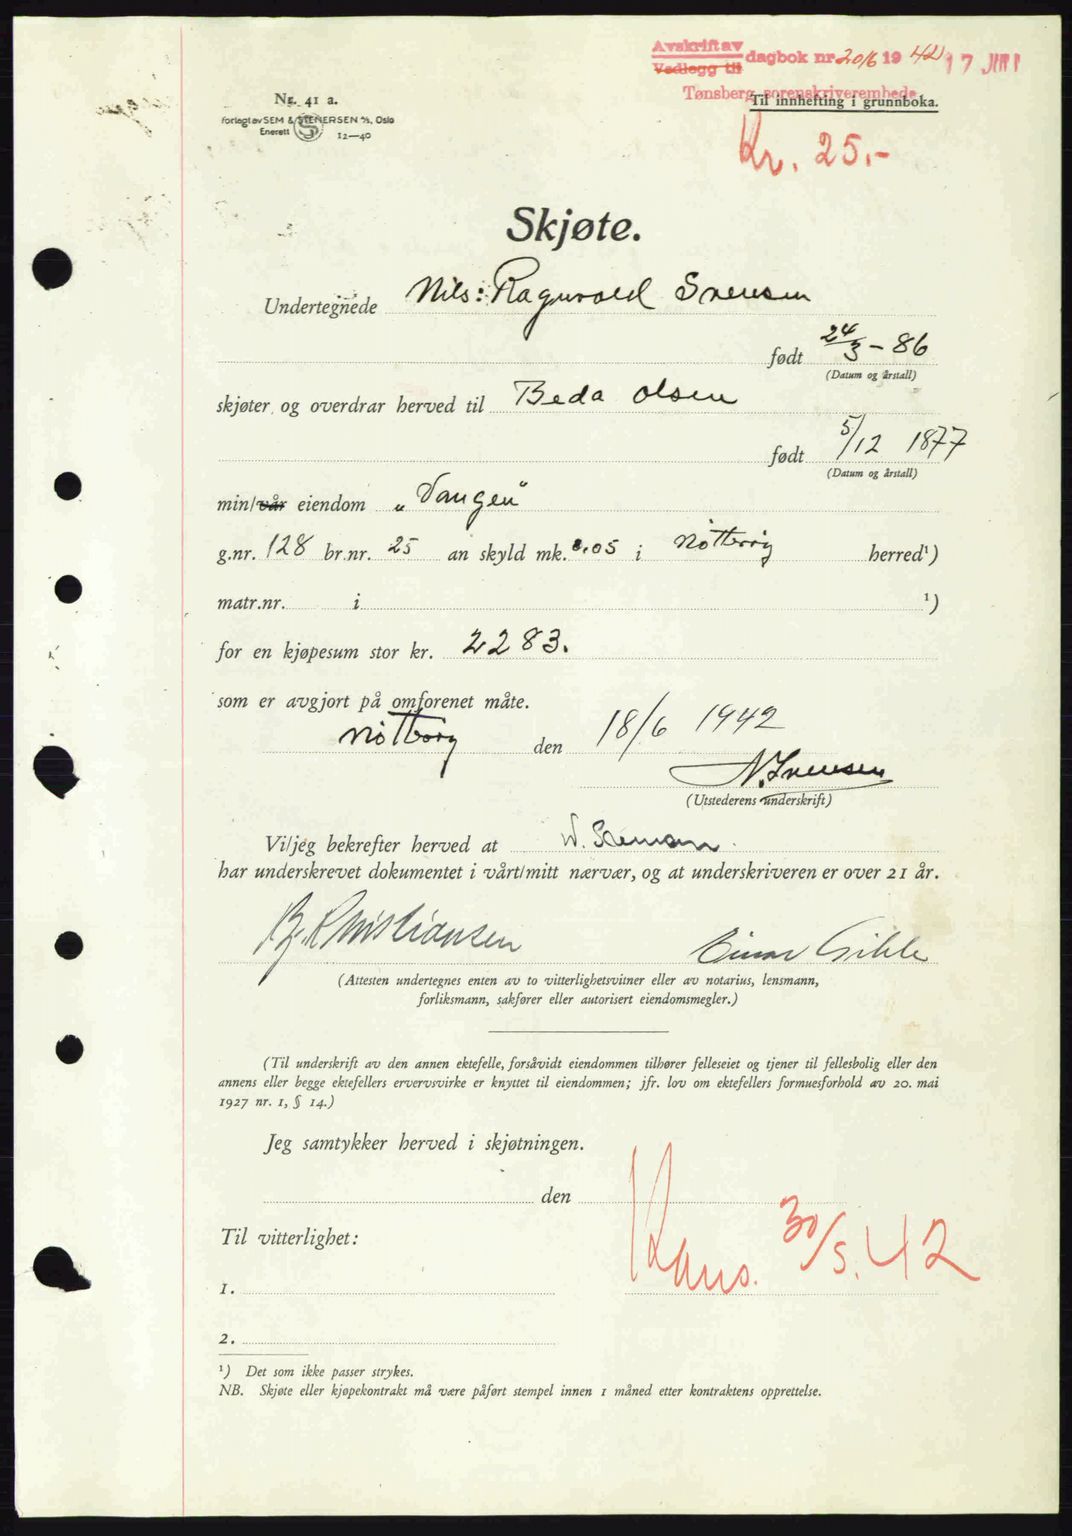 Avskrift av
Vedlegg til
dagbok nr 2016 19 42 17 JUNI
Tønsberg sorenskriverembede
Til innhefting i grunnboka.
Kr. 25.-
Nr. 41 a.
Forlagt av SEM & STENERSEN A/S, Oslo
Enerett 12—40
Skjøte.
Undertegnede Nils: Ragnvald Svensen
født 24/3 - 86
(Datum og årstall)
skjøter og overdrar herved til Beda Olsen
født 5/12 1877
(Datum og årstall)
min/vår eiendom „Vangen"
g.nr. 128 br.nr. 25 an skyld mk. 0.05 i Nøtterøy herred¹)
matr.nr. i ¹)
for en kjøpesum stor kr. 2283.
som er avgjort på omforenet måte.
Nøtterøy den 18/6 1942
N. Svensen
(Utstederens underskrift)
Vi/jeg bekrefter herved at
har underskrevet dokumentet i vårt/mitt nærvær, og at underskriveren er over 21 år.
Kristiansen Einar
(Attesten undertegnes enten av to vitterlighetsvitner eller av notarius, lensmann,
forliksmann, sakfører eller autorisert eiendomsmegler.)
(Til underskrift av den annen ektefelle, forsåvidt eiendommen tilhører felleseiet og tjener til fellesbolig eller den
annens eller begge ektefellers ervervsvirke er knyttet til eiendommen; jfr. lov om ektefellers formuesforhold av 20. mai
1927 nr. 1, § 14.)
Jeg samtykker herved i skjøtningen.
den
Til vitterlighet:
Kans. 30/5. 42
1.
2.
¹) Det som ikke passer strykes.
NB. Skjøte eller kjøpekontrakt må være påført stempel innen 1 måned etter kontraktens opprettelse.